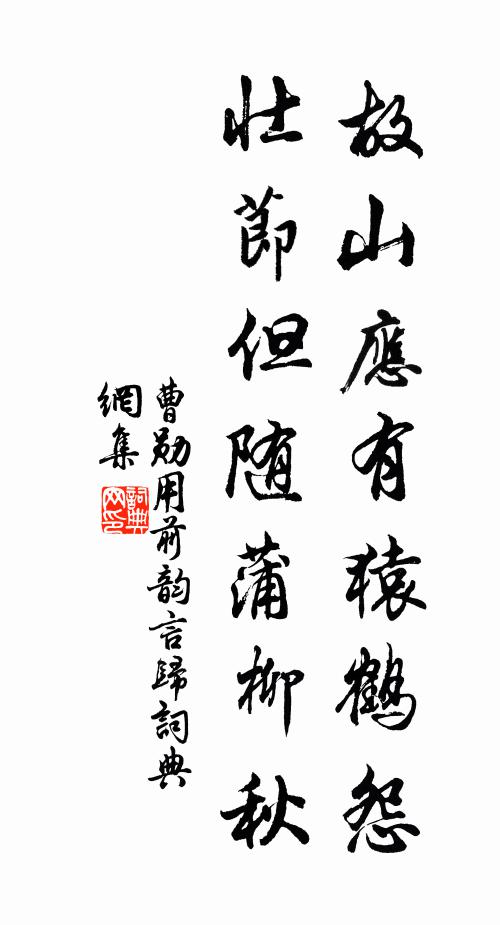 故山應有猿鶴怨
壯節但随蒲柳秋
曹勛用前韵言歸詞典
網集
詞典
网印